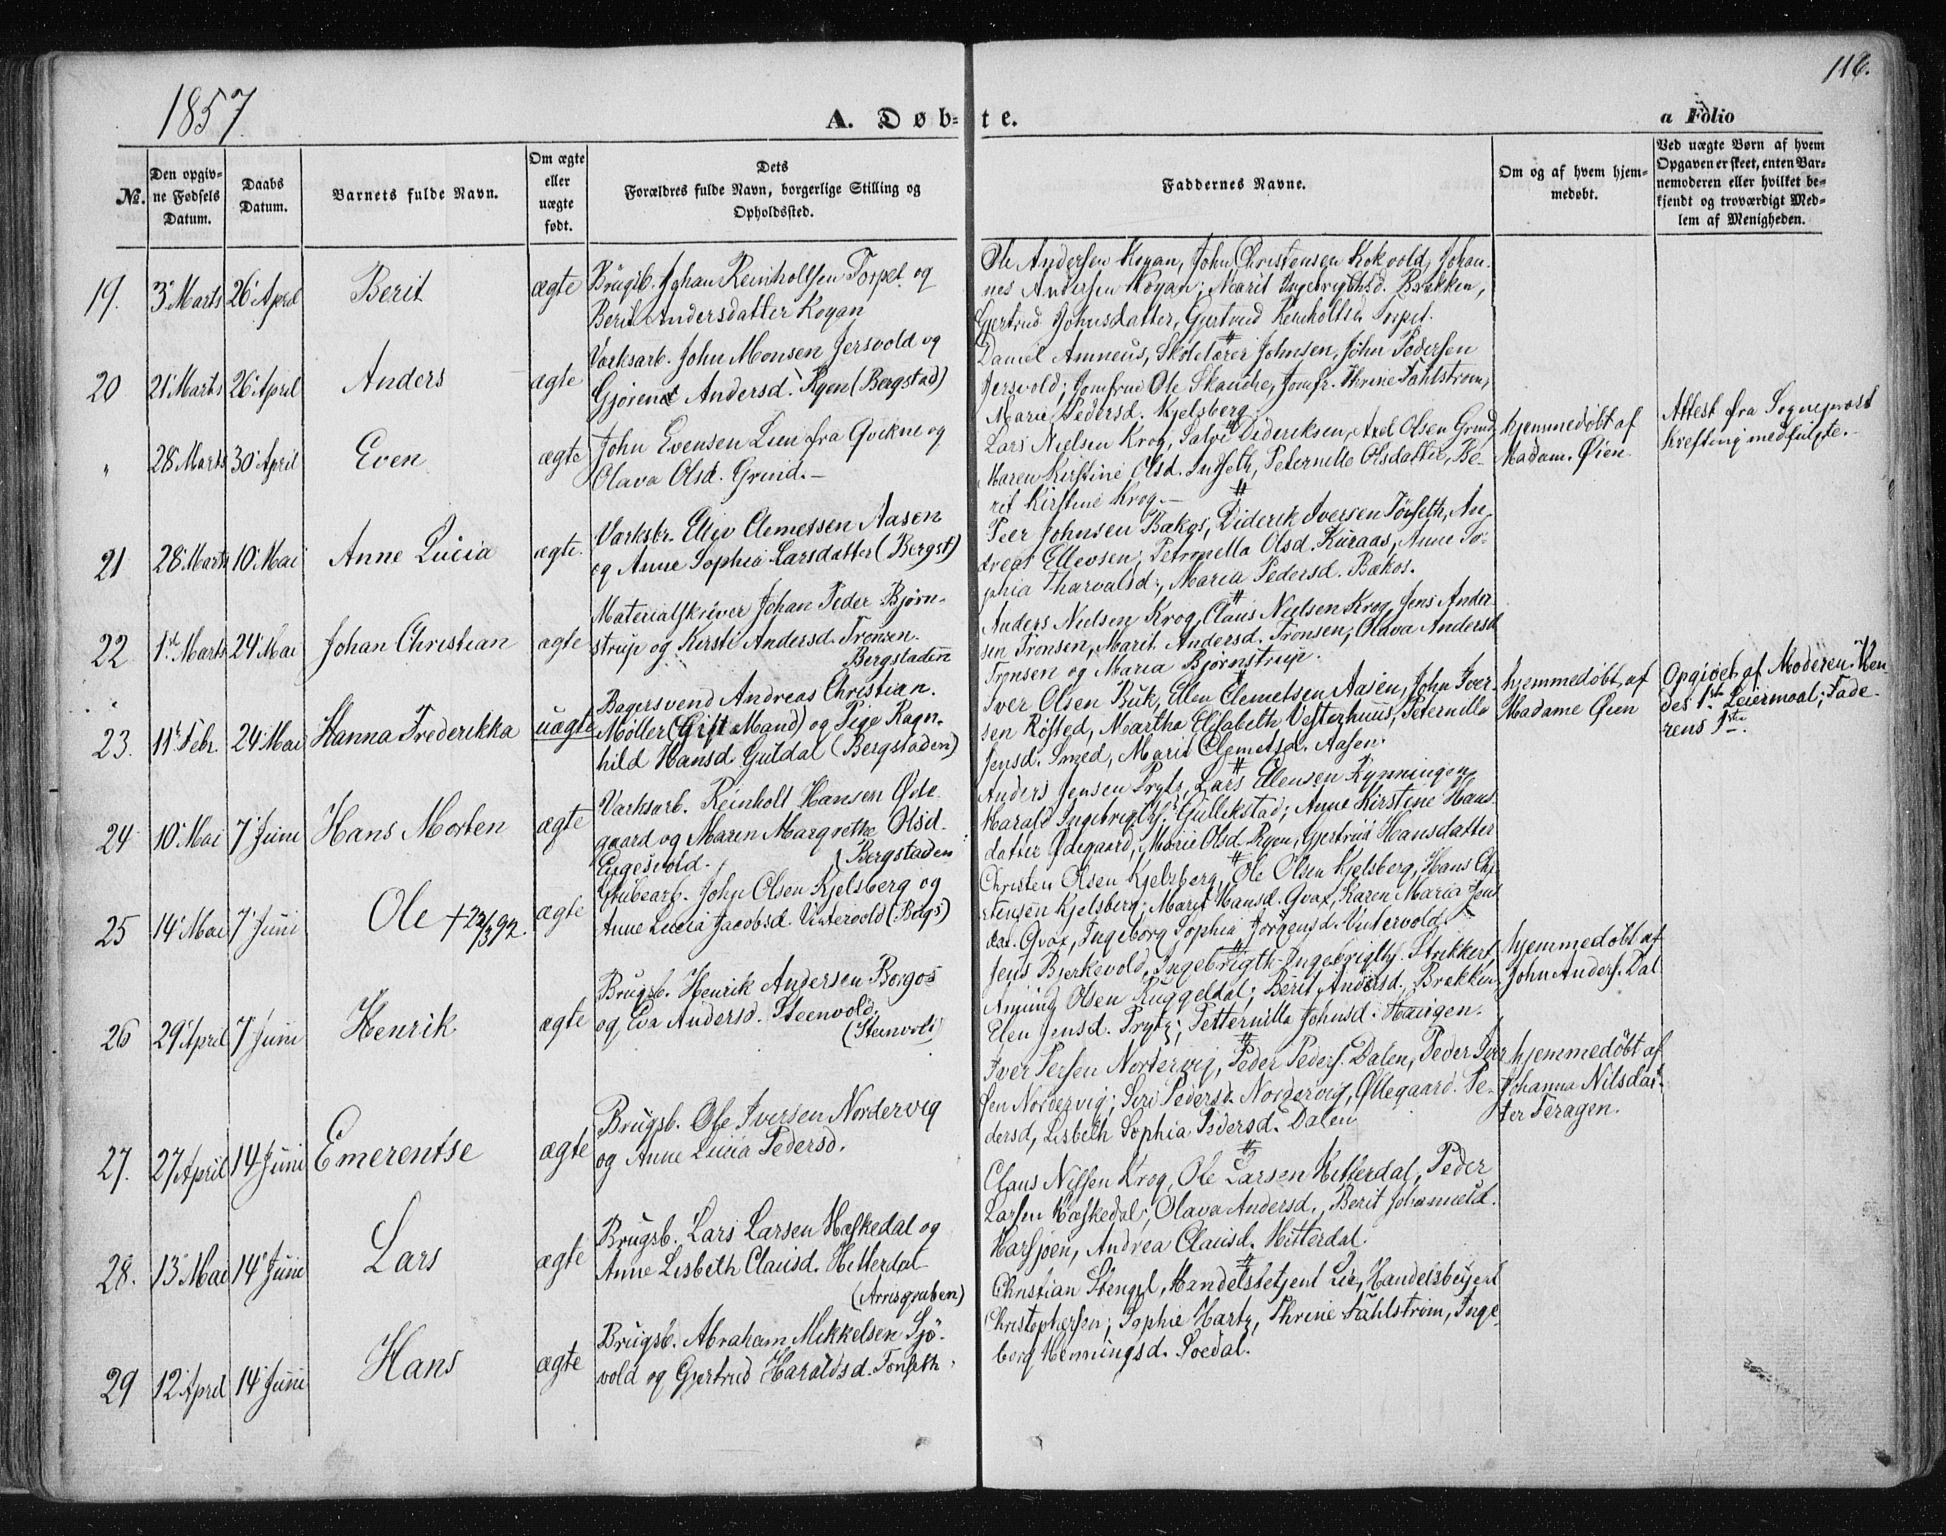 1857.
116.
A. Døb-te.
a Folio
No.
Den opgiv-
ne Fødsels
Datum.
Daabs
Datum.
Barnets fulde Navn.
Om ægte
eller
uægte
født.
Dets
Forældres fulde Navn, borgerlige Stilling og
Opholdssted.
Faddernes Navne.
Om og af hvem hjem-
medøbt.
Ved uægte Børn af hvem
Opgaven er skeet, enten Bar-
nemoderen eller hvilket be-
kjendt og troværdigt Med-
lem af Menigheden.
19. 3 Marts 26 April Berit ægte
Brugsb. Johan Reinholtsen Torpet og
Berit Andersdatter Koyan
Ole Andersen Koyan, John Christensen Kokvold, Johan-
nes Andersen Koyan; Marit Ingebrigtsd. Brekken,
Gjertrud Johnsdatter, Gjertrud Reinholtsd. Torpet.
20 21 Marts 26 April Anders ægte
Varksarb. John Monsen Jersvold og
Gjørend Andersd. Ryen (Bergstad)
Daniel Amneus, Skolelærer Johnsen, John Pedersen
Jersvold; Jomfrue Ole Skanche, Jomfr. Thrine Fahlstrøm,
Marie Pedersd. Kjelsberg.
" 28 Marts 30 April Even ægte
John Evensen Lien fra Qvikne og
Olava Olsd. Grind.-
Lars Nielsen Krog, Salve Dideriksen, Axel Olsen Grind,
Maren Kirstine Olsd. Indseth, Peternille Olsdatter, Be-
rit Kirstine Krog.-
hjemmedøbt af
Madam. Øien
Attest fra Sogneprest
Krefting medfulgte.-
21 28 Marts 10 Mai Anne Lucia ægte.
Varksbr. Ellev Clemetsen Aasen
og Anne Sophia Larsdatter (Bergst)
Peer Johnsen Bakos, Diderik Iversen Tørseth, An-
dreas Ellevsen; Petronella Olsd. Kuraas, Anne So-
phia Tharvalsd:, Maria Pedersd. Bakos.
22 1st Marts 24 Mai Johan Christian ægte
Materialskriver Johan Peder Bjørn-
strup og Kirsti Andersd. Tronsen.
Bergstaden
Anders Nielsen Krog, Claus Nielsen Krog, Jens Ander-
sen Tronsen, Marit Andersd. Tronsen; Olava Andersd
Tronsen og Maria Bjørnstrup.
23. 11te Febr. 24 Mai Hanna Frederikka uægte
Bagersvend Andreas Christian.
Møller (Gift Mand) og Pige Ragn-
hild Hansd Guldal (Bergstaden)
Iver Olsen Buk, Ellev Clemetsen Aasen, John Iver-
sen Røsted, Martha Elisabeth Vesterhuus, Peternille
Jensd. Smed, Marit Clemetsd. Aasen.
hjemmedøbt af
Madame Øien
Opgivet af Moderen. Hen-
des 1ste Leiermaal; Fade-
rens 1ste.
24 10 Mai 7 Juni Hans Morten ægte
Varksarb. Reinholt Hansen Øde-
gaard og Maren Margrethe Olsd.
Engesvold. (Bergstaden
Anders Jensen Prytz, Lars Ellensen Rønningen,
Harald Ingebrigtsj. Gullikstad; Anne Kirstene Hans-
datter Ødegaard; Marie Olsd. Ryen, Gjertrud Hansdatter
25 14 Mai 7 Juni Ole +22/3 92. ægte
Grubearb. John Olsen Kjelsberg og
Anne Lucia Jacobsd. Vintervold (Bergs)
Christen Olsen Kjelsberg, Ole Olsen Kjelsberg, Hans Chr-
stensen Kjelsberg; Marit Hansd. Qvas, Karen Maria Jens
dat. Qvas, Ingeborg Sophia Jörgensd. Vintervold.
26 29 April 7 Juni Henrik ægte
Brugsb. Henrik Andersen Borgos
og Eva Andersd. Steenvold.
(Steenvold)
Jens Bjerkevold, Ingebrigth Ingebrigtsj. Strikkert,
Amund Olsen Ruggeldal; Berit Andersd. Brekken
Elen Jensd. Prytz; Petternille Johnsd. Haugen.
hjemmedøbt af
John Anders. Dal
27. 27 April 14 Juni Emerentse ægte
Brugsb. Ole Iversen Nordervig
og Anne Lucia Pedersd.
Iver Persen Nordervig, Peder Peders. Dalen, Peder Iver
sen Nordervig; Siri Pedersd. Nordervig, Øllegaard Pe-
dersd, Lisbeth Sophia Pedersd. Dalen
hjemmedøbt af
Johanna Nilsdat-
ter Feragen.
28. 13 Mai 14 Juni Lars ægte
Brugsb. Lars Larsen Høskedal og
Anne Lisbeth Clausd. Hitterdal
(Arvisgruben)
Claus Nilsen Krog, Ole Larsen Hitterdal, Peder
Larsen Høskedal; Olava Andersd., Berit Johannesd.
Harsjøen, Andrea Clausd. Hitterdal.
29 12 April 14 Juni Hans ægte
Brugsb. Abraham Mikkelsen Sjö-
vold og Gjertrud Haraldsd. Tonseth
Christian Stengel, Handelsbetjent Lie, Handelsbetjent
Christophersen; Sophie Hartz, Thrine Fahlstrøm, Inge-
borg Henningsd. Soedal.